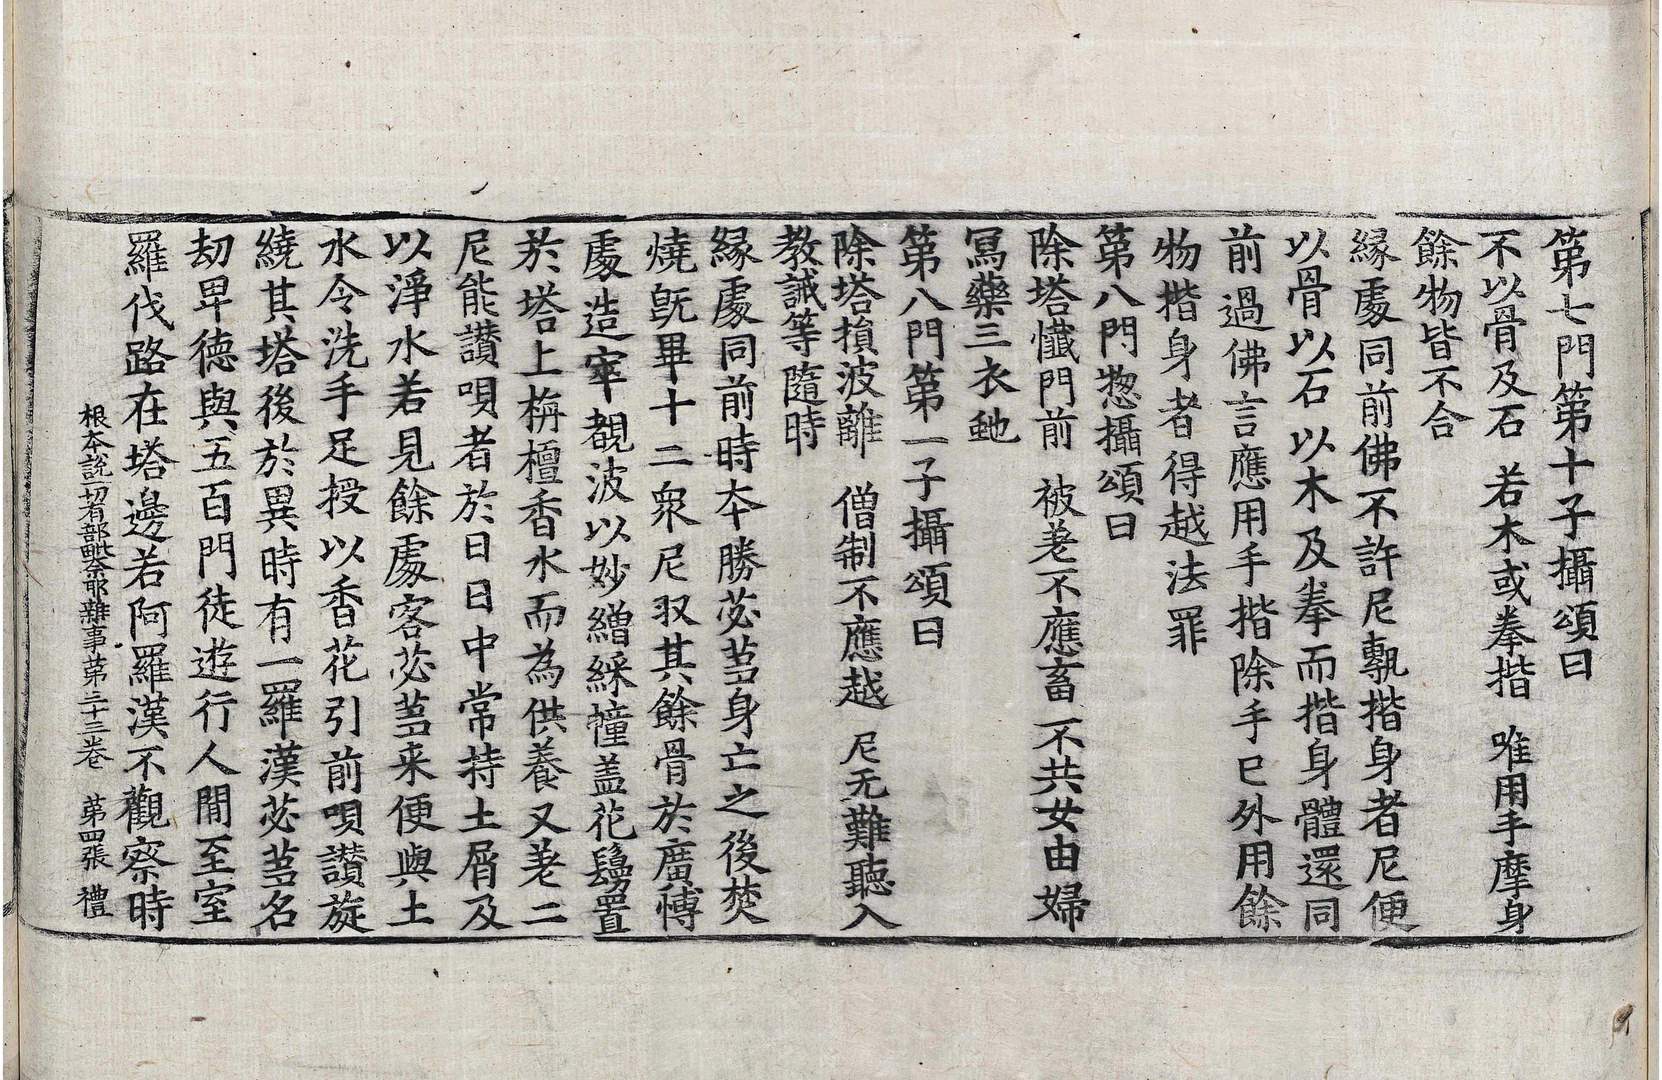 第七門第十子攝頌曰
不以骨及石　若木或拳揩　唯用手摩身
餘物皆不合
緣處同前佛不許尼甎揩身者尼便
以骨以石以木及拳而揩身體還同
前過佛言應用手揩除手已外用餘
物揩身者得越法罪
第八門惣攝頌曰
除塔懺門前　被差不應畜　不共女由婦
寫藥三衣虵
第八門第一子攝頌曰
除塔損波離　僧制不應越　尼无難聽入
教誡等隨時
緣處同前時夲勝苾芻身亡之後焚
燒旣畢十二衆尼収其餘骨於廣博
處造窣覩波以妙繒綵幢盖花鬘置
於塔上栴檀香水而為供養又差二
尼能讃唄者於日日中常持土屑及
以淨水若見餘處客苾芻来便與土
水令洗手足授以香花引前唄讃旋
繞其塔後於異時有一羅漢苾芻名
劫卑德與五百門徒遊行人間至室
羅伐路在塔邊若阿羅漢不觀察時
根夲說一切有部毗奈耶雜事苐三十三卷　苐四張　禮